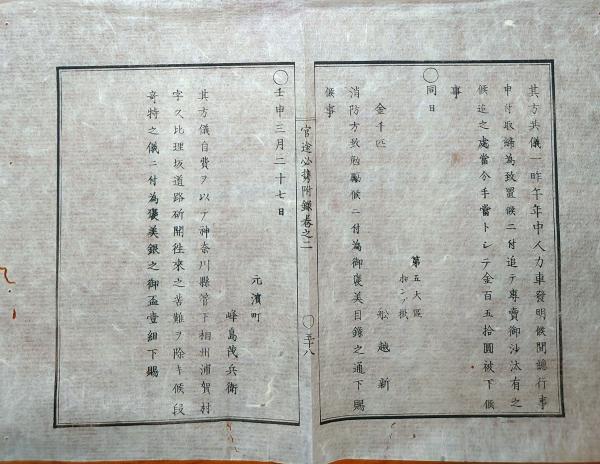 其方共儀一昨午年中人力車發明候間總行事
申付取締為致置候ニ付追テ專賣御沙汰有之
候迄之處當今手當トシテ金百五拾圓被下候
事
○同日
第五大區
松越新
金千匹
消防方致勉勵候ニ付為御褒美目錄之通下賜
候事
官途必携附錄卷之二
○五十八
○壬申三月二十七日
元濱町
峰島茂兵衛
其方儀自費ヲ以テ神奈川縣管下相州浦賀村
字久比理坂道路斫開徃來之苦難ヲ除キ候段
奇特之儀ニ付為褒美銀之御盃壹組下賜